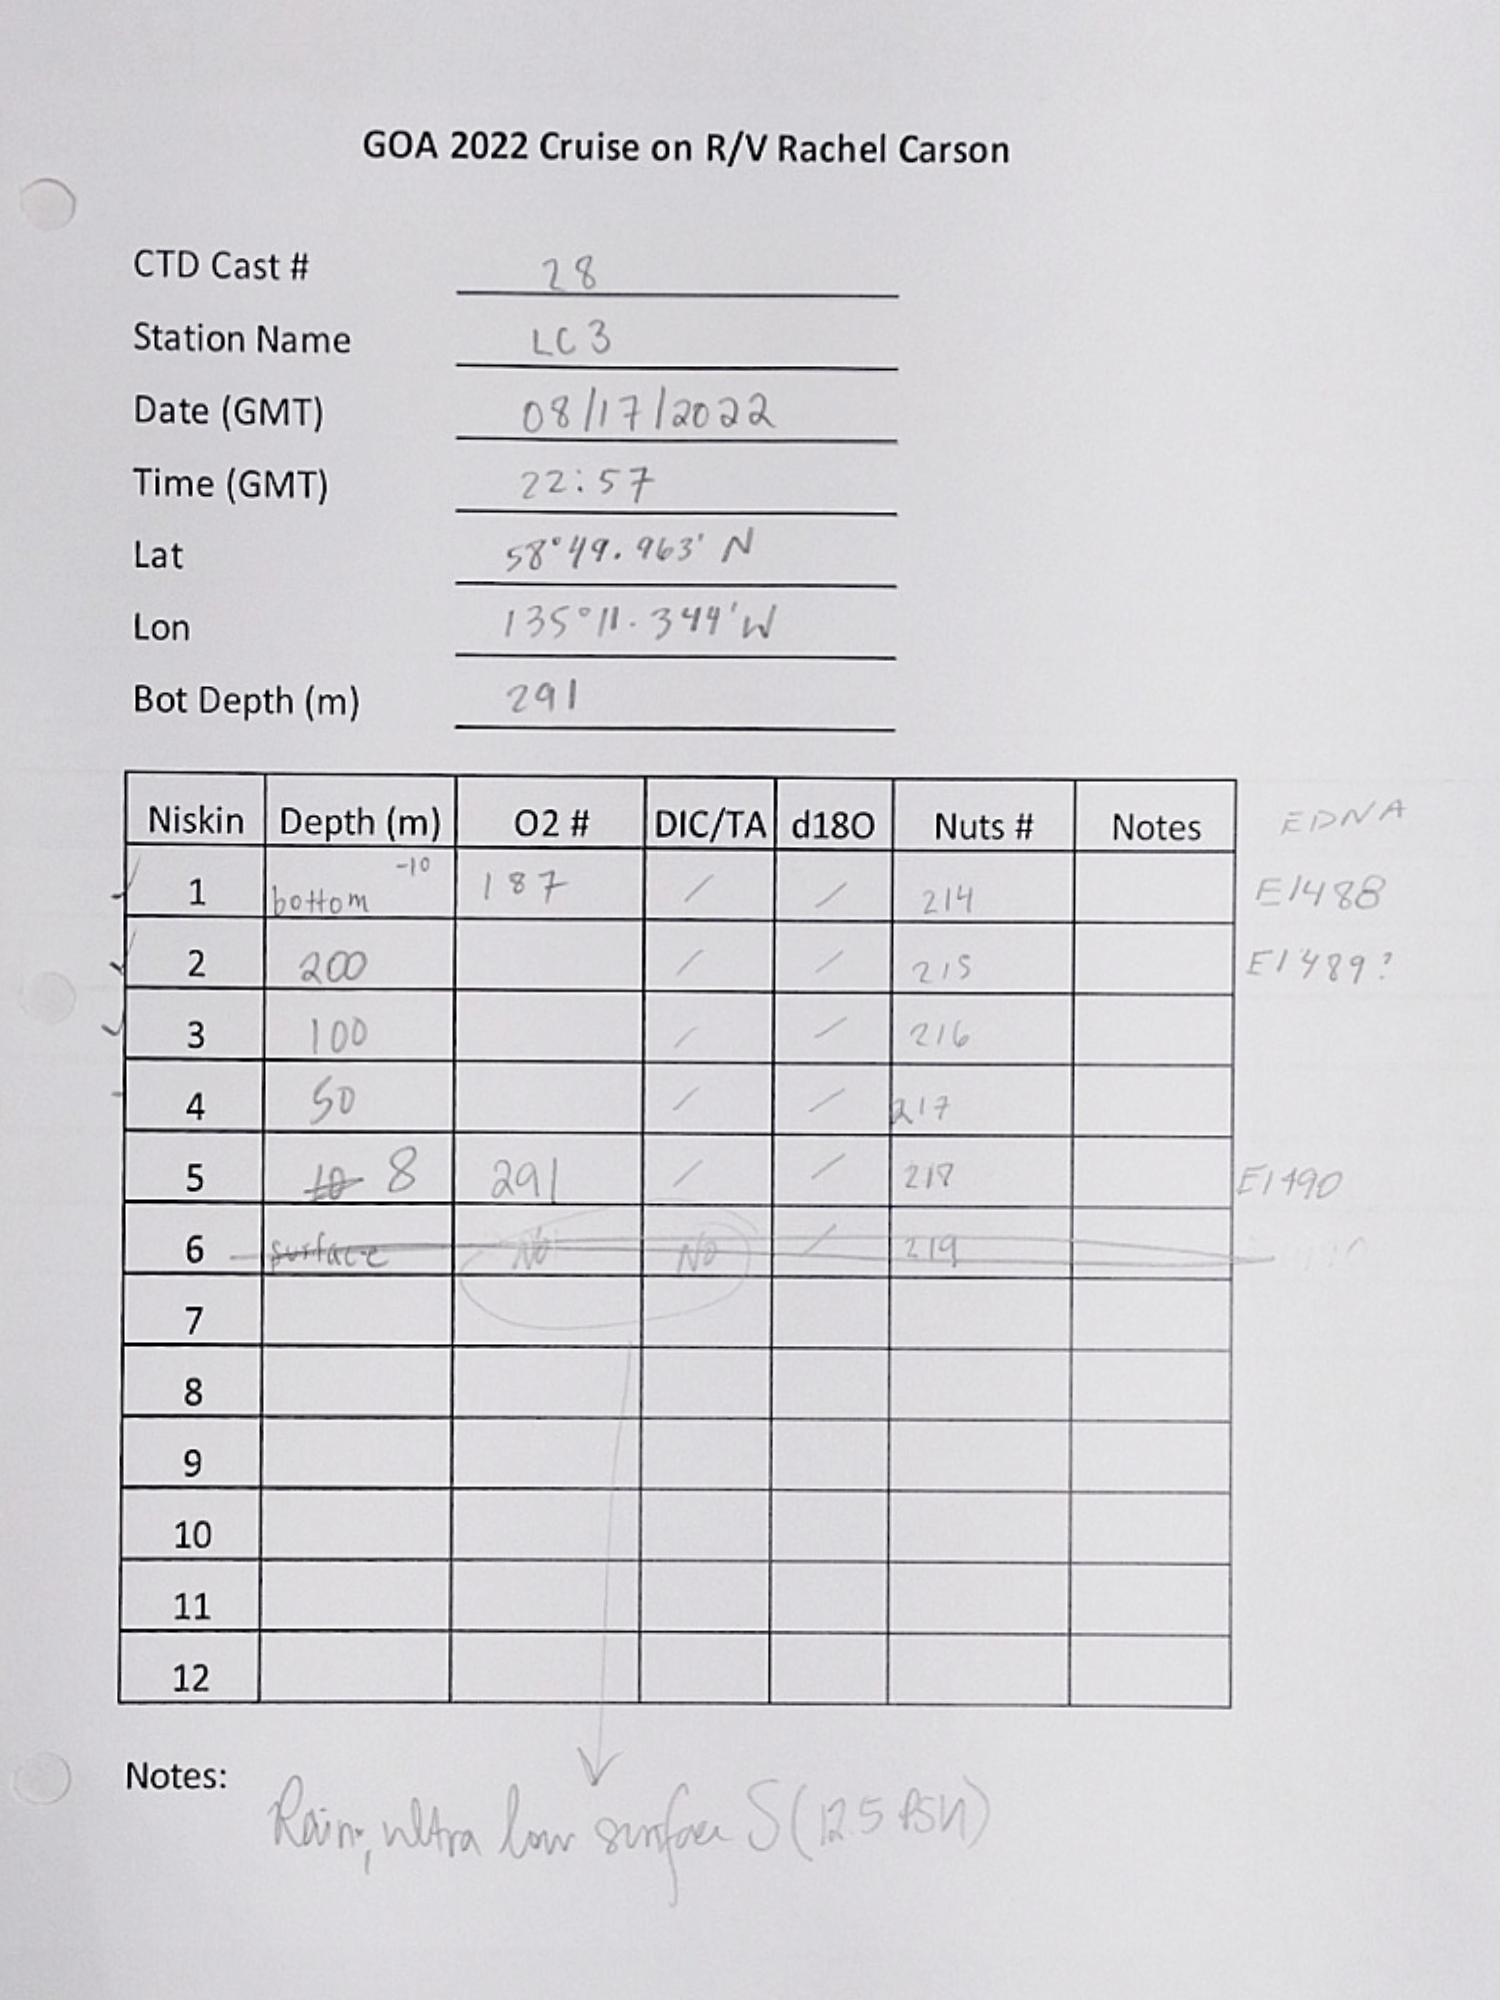 GOA 2022 Cruise on R/V Rachel Carson
CTD Cast # 28
Station Name LC3
Date (GMT) 08/17/2022
Time (GMT) 22:57
Lat 58°49.963' N
Lon 135°11.344' W
Bot Depth (m) 291
Niskin Depth (m) O2 # DIC/TA d18O Nuts # Notes EDNA
1 bottom -10 187 / / 214 E1488
2 200 / / 215 E1489?
3 100 / / 216
4 50 / / 217
5 10 8 291 / / 218 E1490
6 surface No No / 219
7
8
9
10
11
12
Notes:
Rain, ultra low surface S (12.5 PSU)